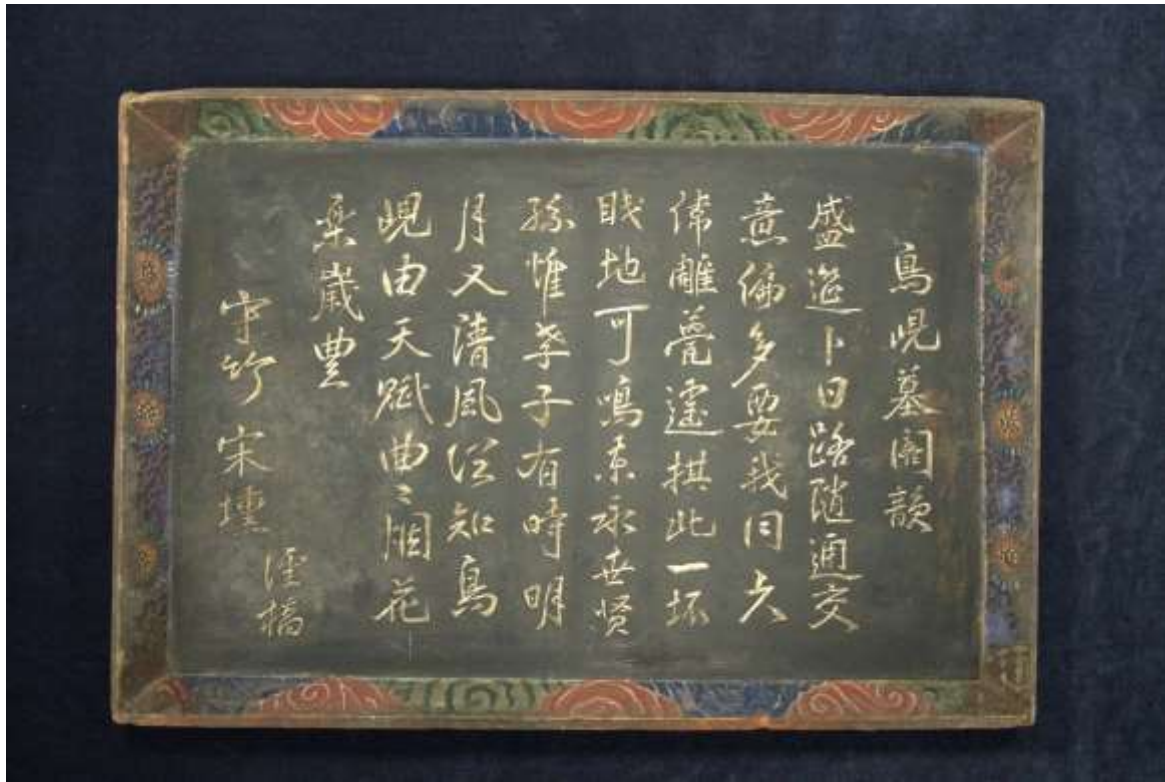 鳥峴墓閣韻
盛卜日路隨通交
意偏多要我同六
偉雕甍拱此一坏
地可鳴東永世賢
孫惟孝子有時明
月又清風從知鳥
峴由天賦曲〻烟花
樂歲豊
守竹 宋壎
橋